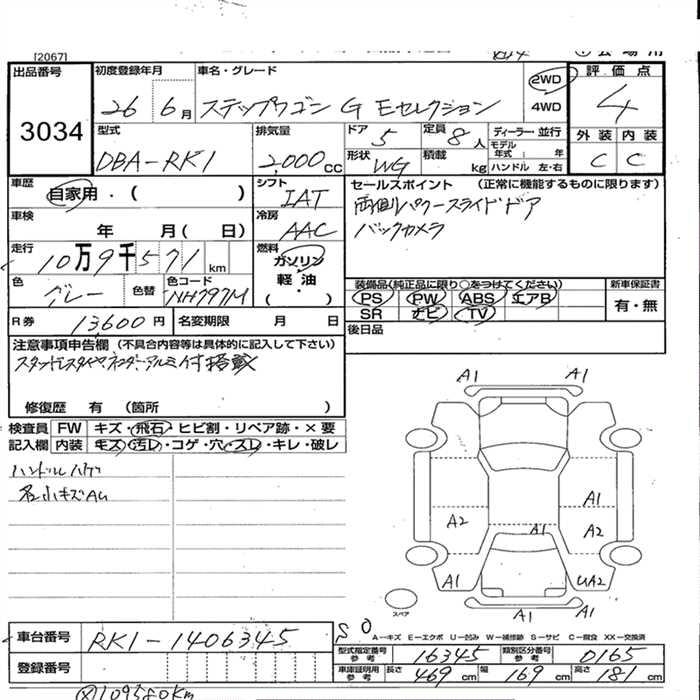 [2067]
出品番号 初度登録年月 車名・グレード 2WD 評価点
3034 26 6月 ステップワゴン G Eセレクション 4WD 4
型式 排気量 ドア 定員 ディーラー・並行 外装 内装
DBA-RK1 2,000cc 5 8人 モデル年式: 年 C C
形状 WG 積載 kg ハンドル 左・右
車歴 シフト セールスポイント (正常に機能するものに限ります)
自家用・( ) IAT 両側パワースライドドア
車検 年 月( 日) 冷房 AAC バックカメラ
走行 燃料
10万9千571km ガソリン
色 色替 色コード 軽油 装備品(純正品に限り○をつけてください) 新車保証書
グレー NH797M ・( ) PS PW ABS エアB 有・無
R券 13600円 名変期限 月 日 SR ナビ TV
後日品
注意事項申告欄 (不具合内容等は具体的に記入して下さい)
スタッドレスタイヤ アルミ付 搭載
修復歴 有 (箇所 )
検査員 FW キズ・飛石・ヒビ割・リペア跡・×要
記入欄 内装 キズ・汚レ・コゲ・穴・スレ・キレ・破レ
ハンドルハゲ
各小キズAU
A1 A1
A1
A2 A1 A2
A1 UA2
A1
スペア
A-キズ E-エクボ U-凹み W-補修跡 S-サビ C-腐食 XX-交換済
車台番号 RK1-1406345
型式指定番号 参考 16345 類別区分番号 参考 0165
登録番号
車庫証明用 参考 長さ 469cm 幅 169cm 高さ 181cm
109580km